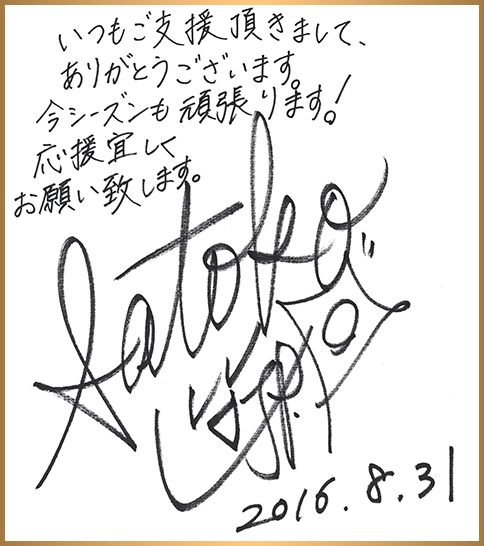 いつもご支援頂きまして、
ありがとうございます。
今シーズンも頑張ります!
応援宜しく
お願い致します。
Satoko
2016.8.31